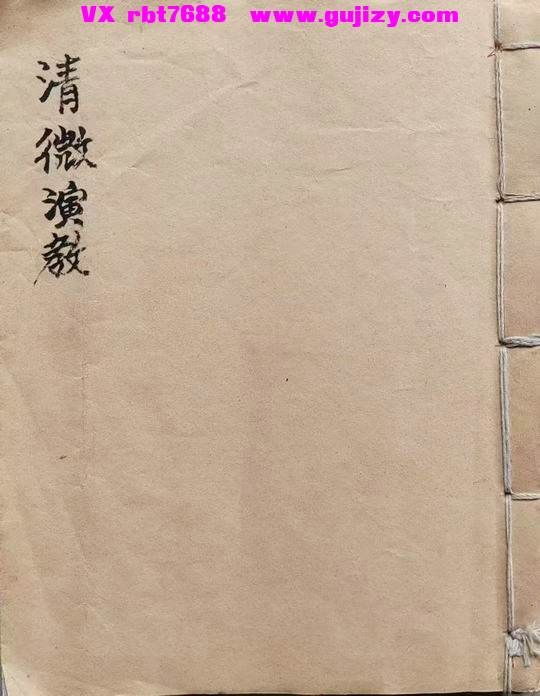 VX rbt7688 www.gujizy.com
清微演教